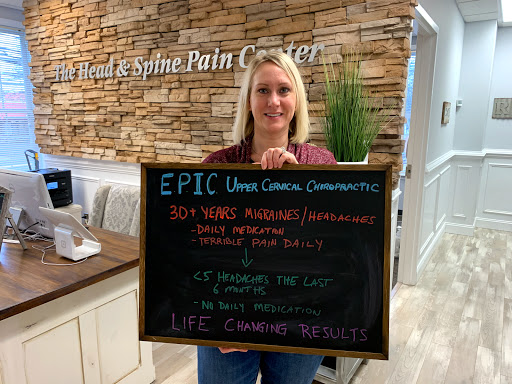 The Head & Spine Pain Center
E.P.I.C. UPPER CERVICAL CHIROPRACTIC
30+ YEARS MIGRAINES/HEADACHES
- DAILY MEDICATION
- TERRIBLE PAIN DAILY
<5 HEADACHES THE LAST
6 MONTHS
- NO DAILY MEDICATION
LIFE CHANGING RESULTS